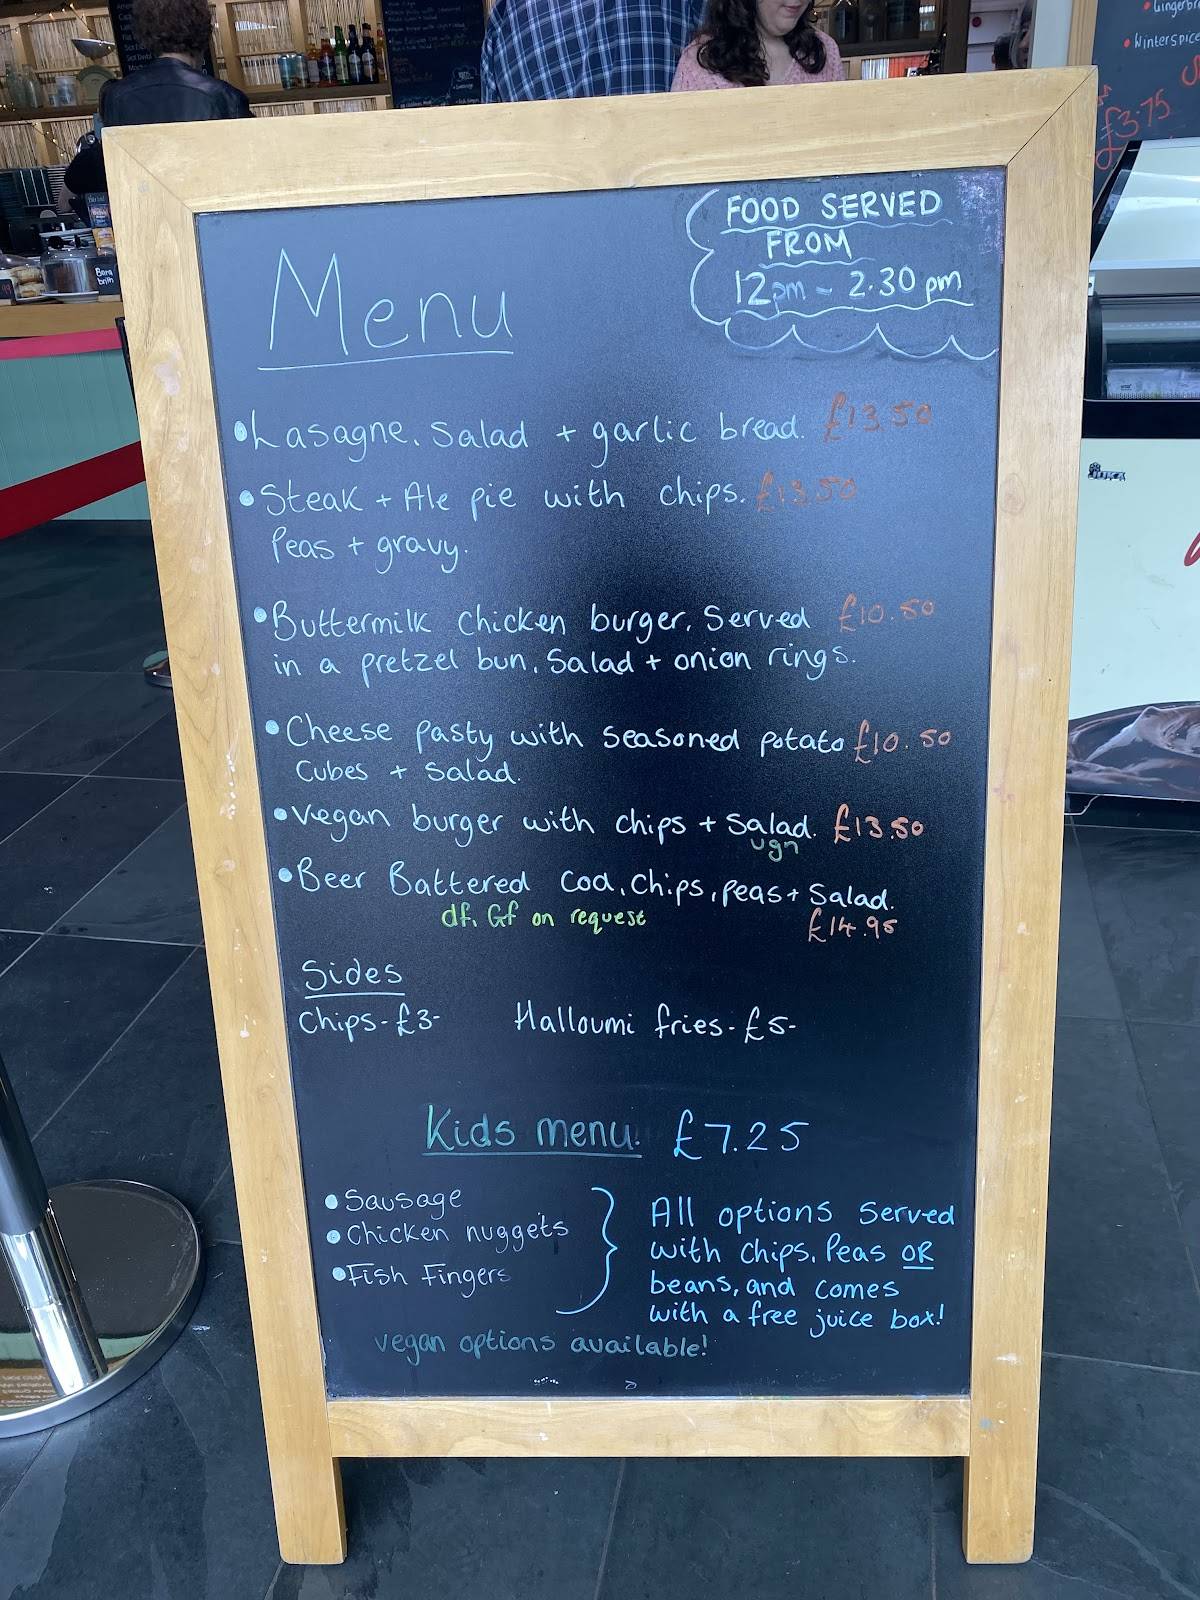 FOOD SERVED
FROM
12pm - 2.30pm
Menu
Lasagne, Salad + garlic bread. £13.50
Steak + Ale pie with chips. £13.50
Peas + gravy.
Buttermilk chicken burger. Served £10.50
in a pretzel bun, Salad + onion rings.
Cheese pasty with seasoned potato £10.50
Cubes + Salad.
Vegan burger with chips + Salad. £13.50
vgn
Beer Battered Cod, Chips, peas + Salad.
df, Gf on request £14.95
Sides
Chips-£3- Halloumi fries-£5-
Kids menu: £7.25
Sausage
Chicken nuggets
Fish Fingers
All options served
with chips, Peas OR
beans, and comes
with a free juice box!
vegan options available!
Bara
brith
Winterspice
£3.75